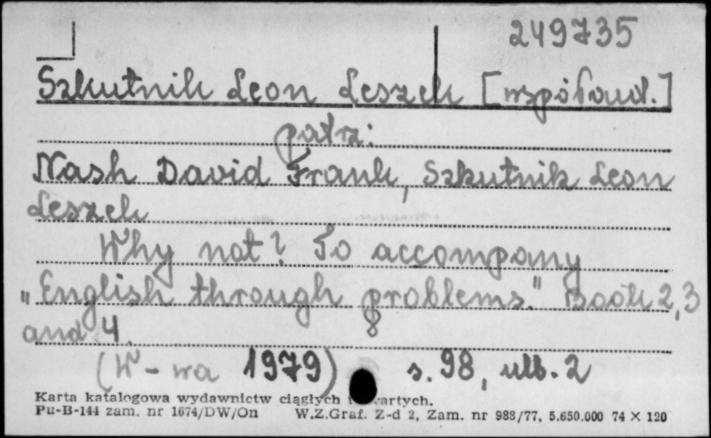 249735
Szkutnik Leon Leszek [współaut.]
patrz:
Nash David Frank, Szkutnik Leon
Leszek
Why not? To accompany
„English through problems." Book 2,3
and 4.
8
(W-wa 1979) s. 98, ulb. 2
Karta katalogowa wydawnictw ciągłych i zwartych.
Pu-B-144 zam. nr 1674/DW/On W.Z.Graf. Z-d 2, Zam. nr 988/77, 5.650.000 74 × 120